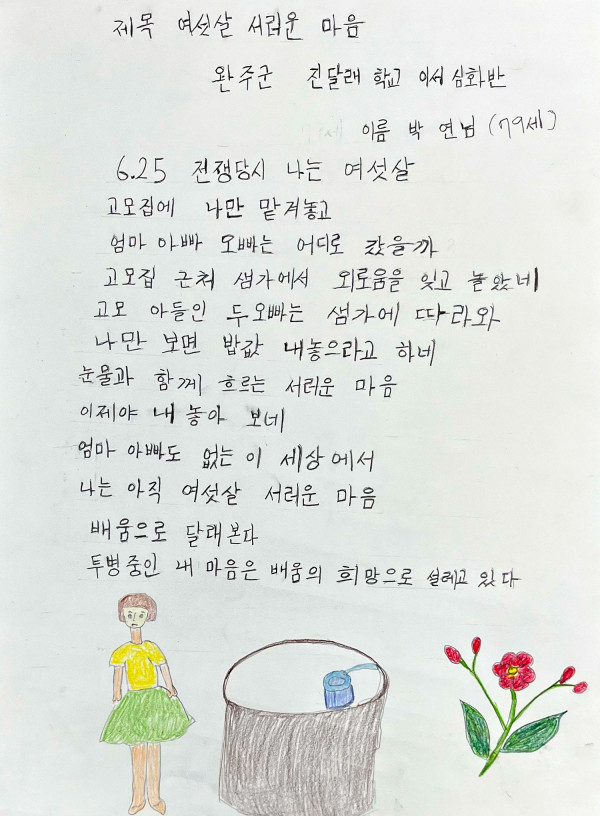 제목 여섯살 서러운 마음
완주군 진달래 학교 이서 심화반
이름 박 연님 (79세)
6.25 전쟁당시 나는 여섯살
고모집에 나만 맡겨놓고
엄마 아빠 오빠는 어디로 갔을까
고모집 근처 샘가에서 외로움을 잊고 놀았네
고모 아들인 두오빠는 샘가에 따라와
나만 보면 밥값 내놓으라고 하네
눈물과 함께 흐르는 서러운 마음
이제야 내 놓아 보네
엄마 아빠도 없는 이 세상에서
나는 아직 여섯살 서러운 마음
배움으로 달래본다
투병중인 내 마음은 배움의 희망으로 설레고 있다